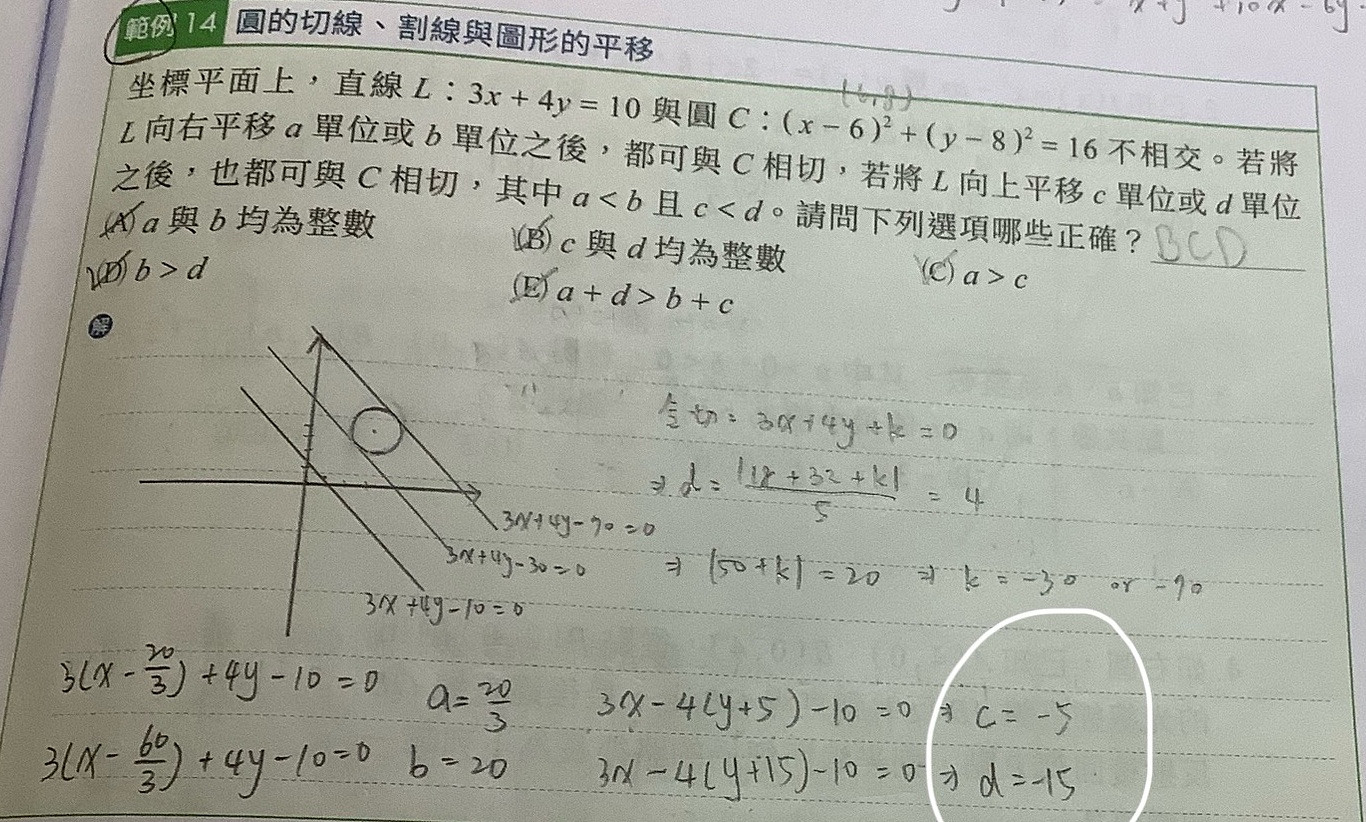 x+y +10x-6y-
範例 14 圓的切線、割線與圖形的平移
(6,8)
坐標平面上，直線 L：3x + 4y = 10 與圓 C：(x − 6)² + (y − 8)² = 16 不相交。若將
L 向右平移 a 單位或 b 單位之後，都可與 C 相切，若將 L 向上平移 c 單位或 d 單位
之後，也都可與 C 相切，其中 a < b 且 c < d。請問下列選項哪些正確？ BCD
(A) a 與 b 均為整數 (B) c 與 d 均為整數 (C) a > c
(D) b > d (E) a + d > b + c
解
令切= 3x+4y+k=0
⇒ d= |18+32+k| / 5 = 4
3x+4y-90=0
3x+4y-30=0
⇒ |50+k|=20 ⇒ k=-30 or -90
3x+4y-10=0
3(x-20/3)+4y-10=0 a=20/3 3x-4(y+5)-10=0 ⇒ c=-5
3(x-60/3)+4y-10=0 b=20 3x-4(y+15)-10=0 ⇒ d=-15